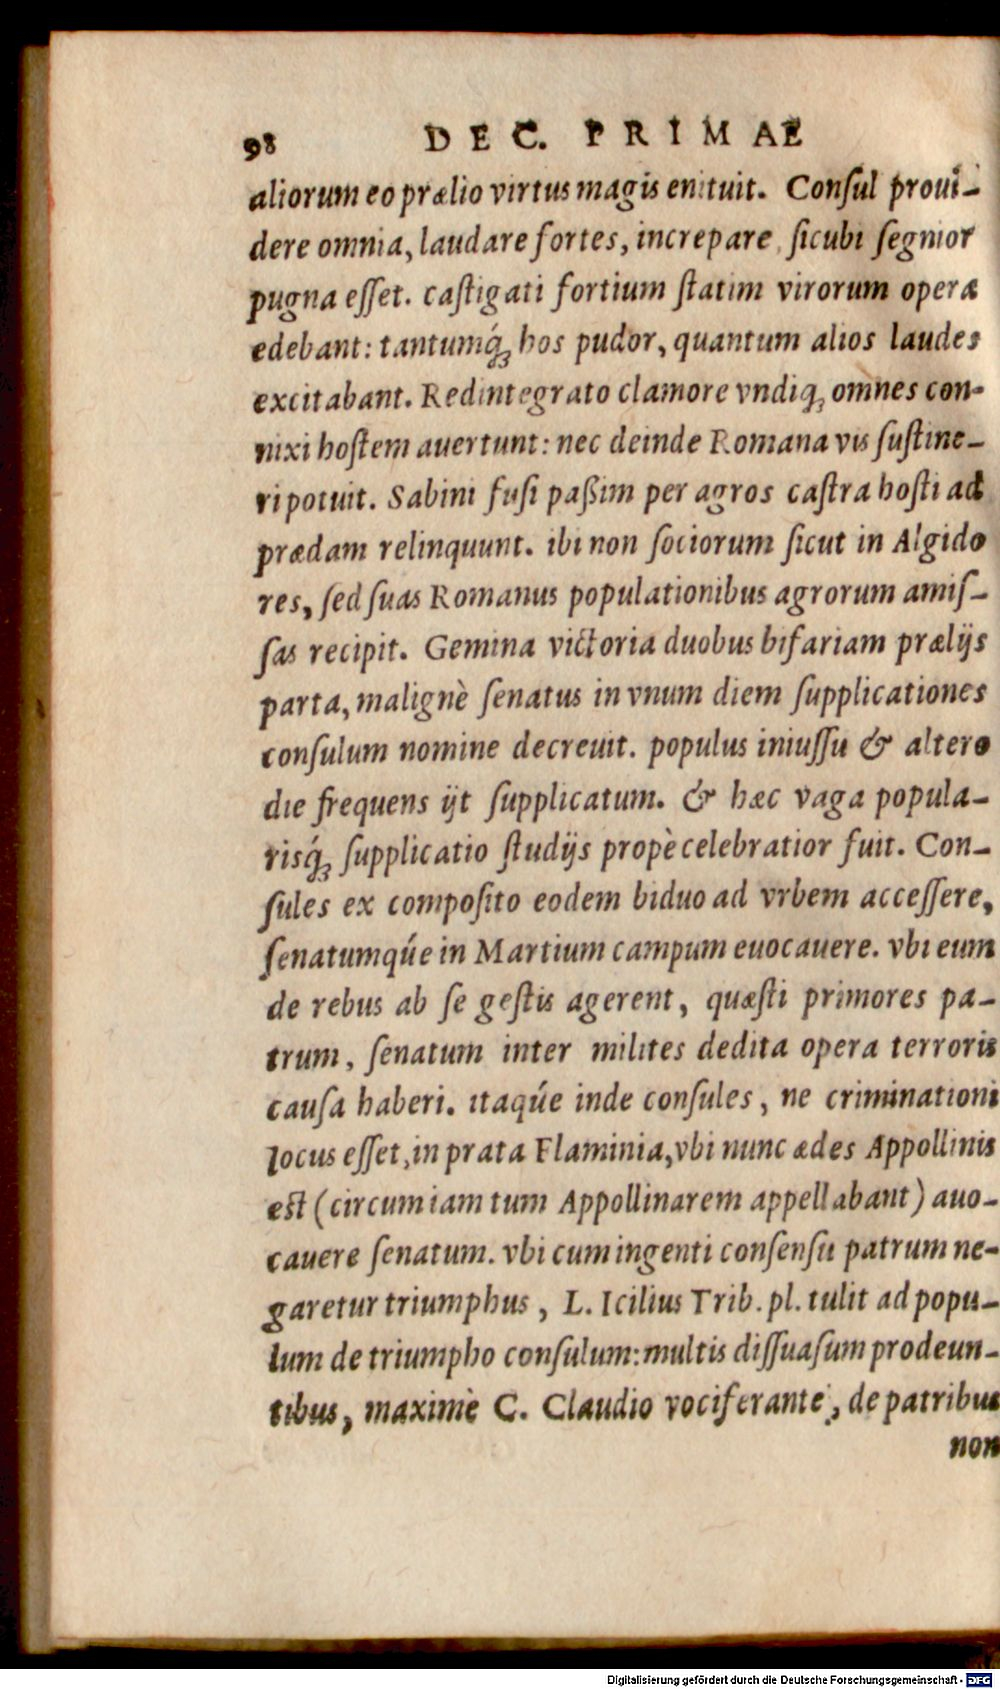 98 DEC. PRIMAE
aliorum eo prælio virtus magis enituit. Conſul prouí-
dere omnia, laudare fortes, increpare ſicubi ſegnior
pugna eſſet. caſtigati fortium ſtatim virorum opera
edebant: tantumq́ꝫ hos pudor, quantum alios laudes
excitabant. Redintegrato clamore vndiqꝫ omnes con-
nixi hoſtem auertunt: nec deinde Romana vis ſuſtine-
ri potuit. Sabini fuſi paßim per agros caſtra hoſti ad
prædam relinquunt. ibi non ſociorum ſicut in Algido
res, ſed ſuas Romanus populationibus agrorum amiſ-
ſas recipit. Gemina victoria duobus bifariam prælijs
parta, malignè ſenatus in vnum diem ſupplicationes
conſulum nomine decreuit. populus iniuſſu & altero
die frequens ijt ſupplicatum. & hæc vaga popula-
risq́ꝫ ſupplicatio ſtudijs propè celebratior fuit. Con-
ſules ex compoſito eodem biduo ad vrbem acceſſere,
ſenatumq́ue in Martium campum euocauere. vbi eum
de rebus ab ſe geſtis agerent, quæſti primores pa-
trum, ſenatum inter milites dedita opera terroris
cauſa haberi. itaq́ue inde conſules, ne criminationi
locus eſſet, in prata Flaminia, vbi nunc ædes Appollinis
est (circum iam tum Appollinarem appellabant) auo-
cauere ſenatum. vbi cum ingenti conſenſu patrum ne-
garetur triumphus, L. Icilius Trib. pl. tulit ad popu-
lum de triumpho conſulum: multis diſſuaſum prodeun-
tibus, maximè C. Claudio vociferante, de patribus
non
Digitalisierung gefördert durch die Deutsche Forschungsgemeinschaft - DFG